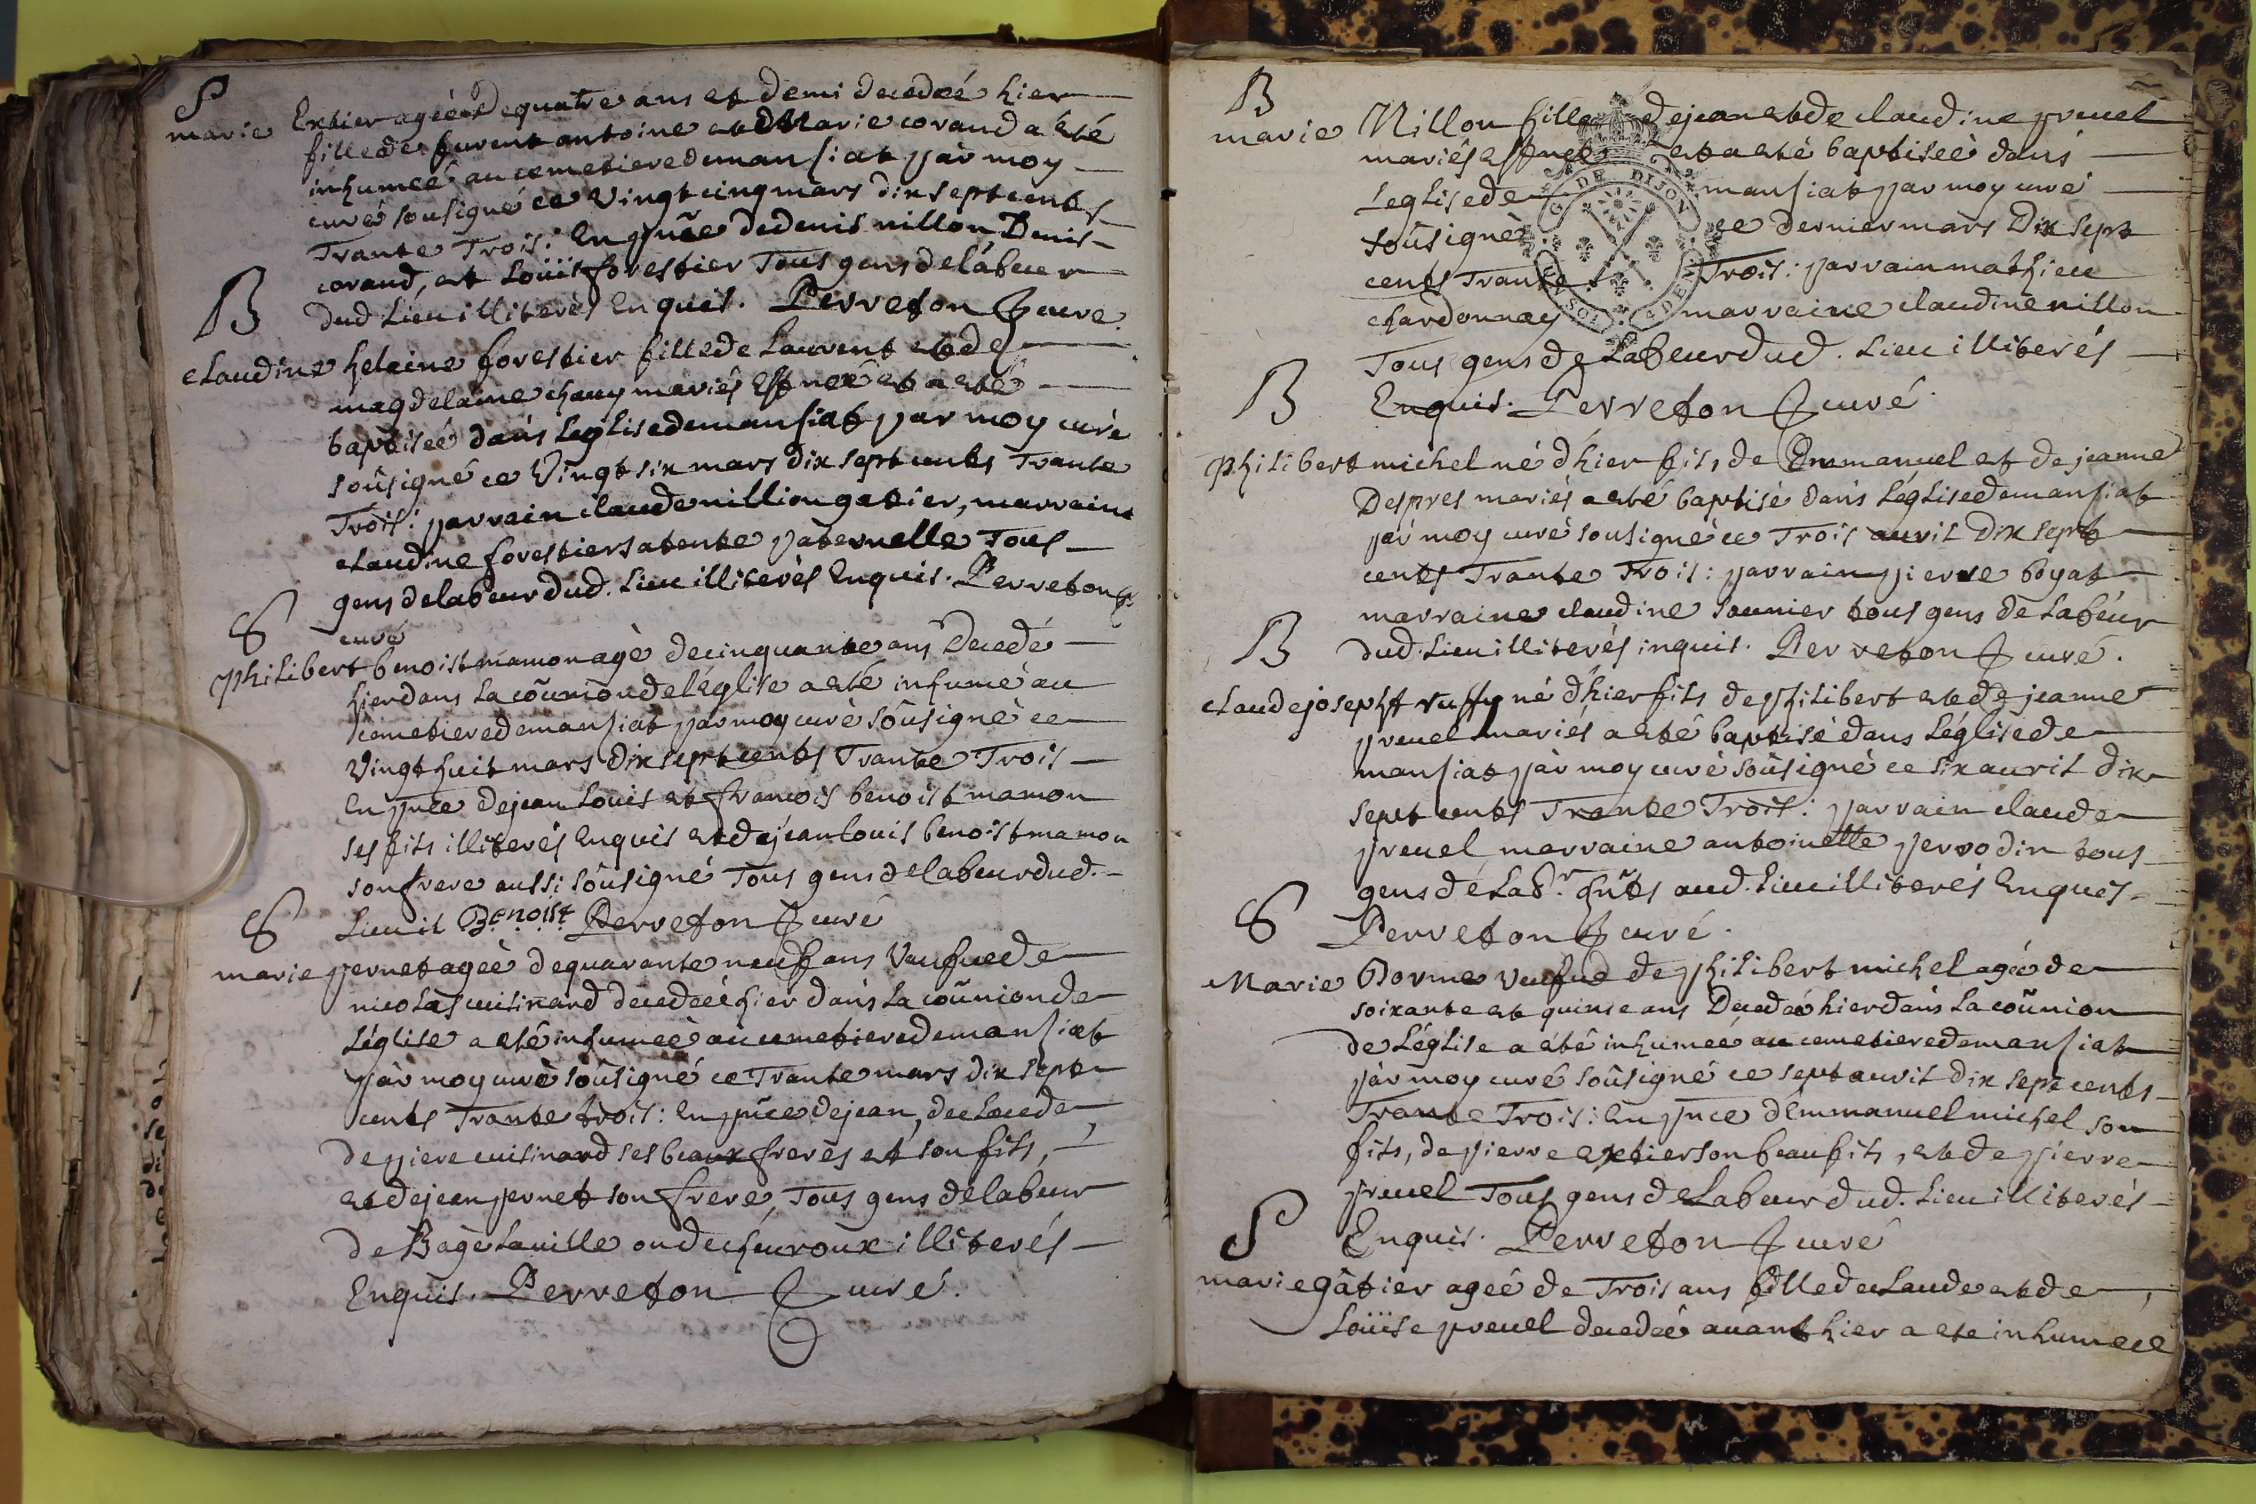 S
marie Extier ageé de quatre ans et demi decedeé hier
fille de furent antoine et Marie corand a eté
inhumeé au cemetiere de mansiat par moy
curé sousigné ce vingt cinq mars dix sept cents
Trante Trois: En pnce de denis nillon Denis
corand, et Loüis forestier Tous gens de labeur
dud Lieu illiterés Enquis. Perreton curé
B
claudine helaine forestier fille de Laurent et de
magdelaine chauy mariés Est neé et a eté
baptiseé dans Leglise de mansiat par moy curé
sousigné ce Vingt six mars dix sept cents Trante
Trois: parrain claude nillion gatier, marraine
claudine forestier sa tente paternelle Tous
gens de labeur dud. Lieu illiterés Enquis. Perreton
curé
S
philibert benoist mamon agé de cinquante ans Decedé
hier dans la coũnion de l'église a eté inhumé au
cemetiere de mansiat par moy curé sousigné ce
vingt huit mars dix sept cents Trante Trois
En pnce de jean Louis et francois benoist mamon
ses fils illiterés Enquis et de jean louis benoist mamon
son frere aussi sousigné Tous gens de labeur dud.
Lieu il Benoist Perreton curé
S
marie pernet ageé de quarante neuf ans Veufue de
nicolas cuisinard decedeé hier dans la coũnion de
L'église a eté inhumeé au cemetiere de mansiat
par moy curé sousigné ce Trante mars dix sept
cents Trante trois: En pnce de jean, de claude
de piere cuisinard ses beaux freres et son fils,
et de jean pernet son frere, Tous gens de labeur
de Bagé la uille ou de cheuroux illiterés
Enquis. Perreton curé.
B
marie Nillon fille de jean et de claudine preuel
mariés Est neé et a eté baptiseé dans
Leglise de mansiat par moy curé
sousigné ce dernier mars Dix sept
cents Trante Trois: parrain mathieu
chardonnay marraine claudine nillon
Tous gens de Labeur dud. Lieu illiterés
Enquis. Perreton curé.
B
philibert michel né d'hier fils de Emmanuel et de jeanne
Despres mariés a eté baptisé dans Léglise de mansiat
par moy curé sousigné ce Trois auril Dix sept
cents Trante Trois: parrain pierre boyat
marraine claudine saunier tous gens de Labeur
dud. Lieu illiterés inquis. Perreton curé.
B
claude joseph ruffy né d'hier fils de philibert et de jeanne
preuel mariés a eté baptisé dans Léglise de
mansiat par moy curé sousigné ce six auril dix
sept cents Trante Trois: parrain claude
preuel marraine antoinette perrodin tous
gens de Labr. hñts aud. Lieu illiterés Enquis
Perreton curé.
S
Marie Dorme veufue de philibert michel ageé de
soixante et quinse ans Decedeé hier dans La coũnion
de Léglise a eté inhumeé au cemetiere de mansiat
par moy curé sousigné ce sept auril dix sept cents
Trante Trois: En pnce d'Emmanuel michel son
fils, de pierre extier son beau fils, et de pierre
preuel Tous gens de Labeur dud. Lieu illiterés
Enquis. Perreton curé
S
marie gâtier ageé de Trois ans fille de claude et de
Loüise preuel decedeé auant hier a ete inhumeé